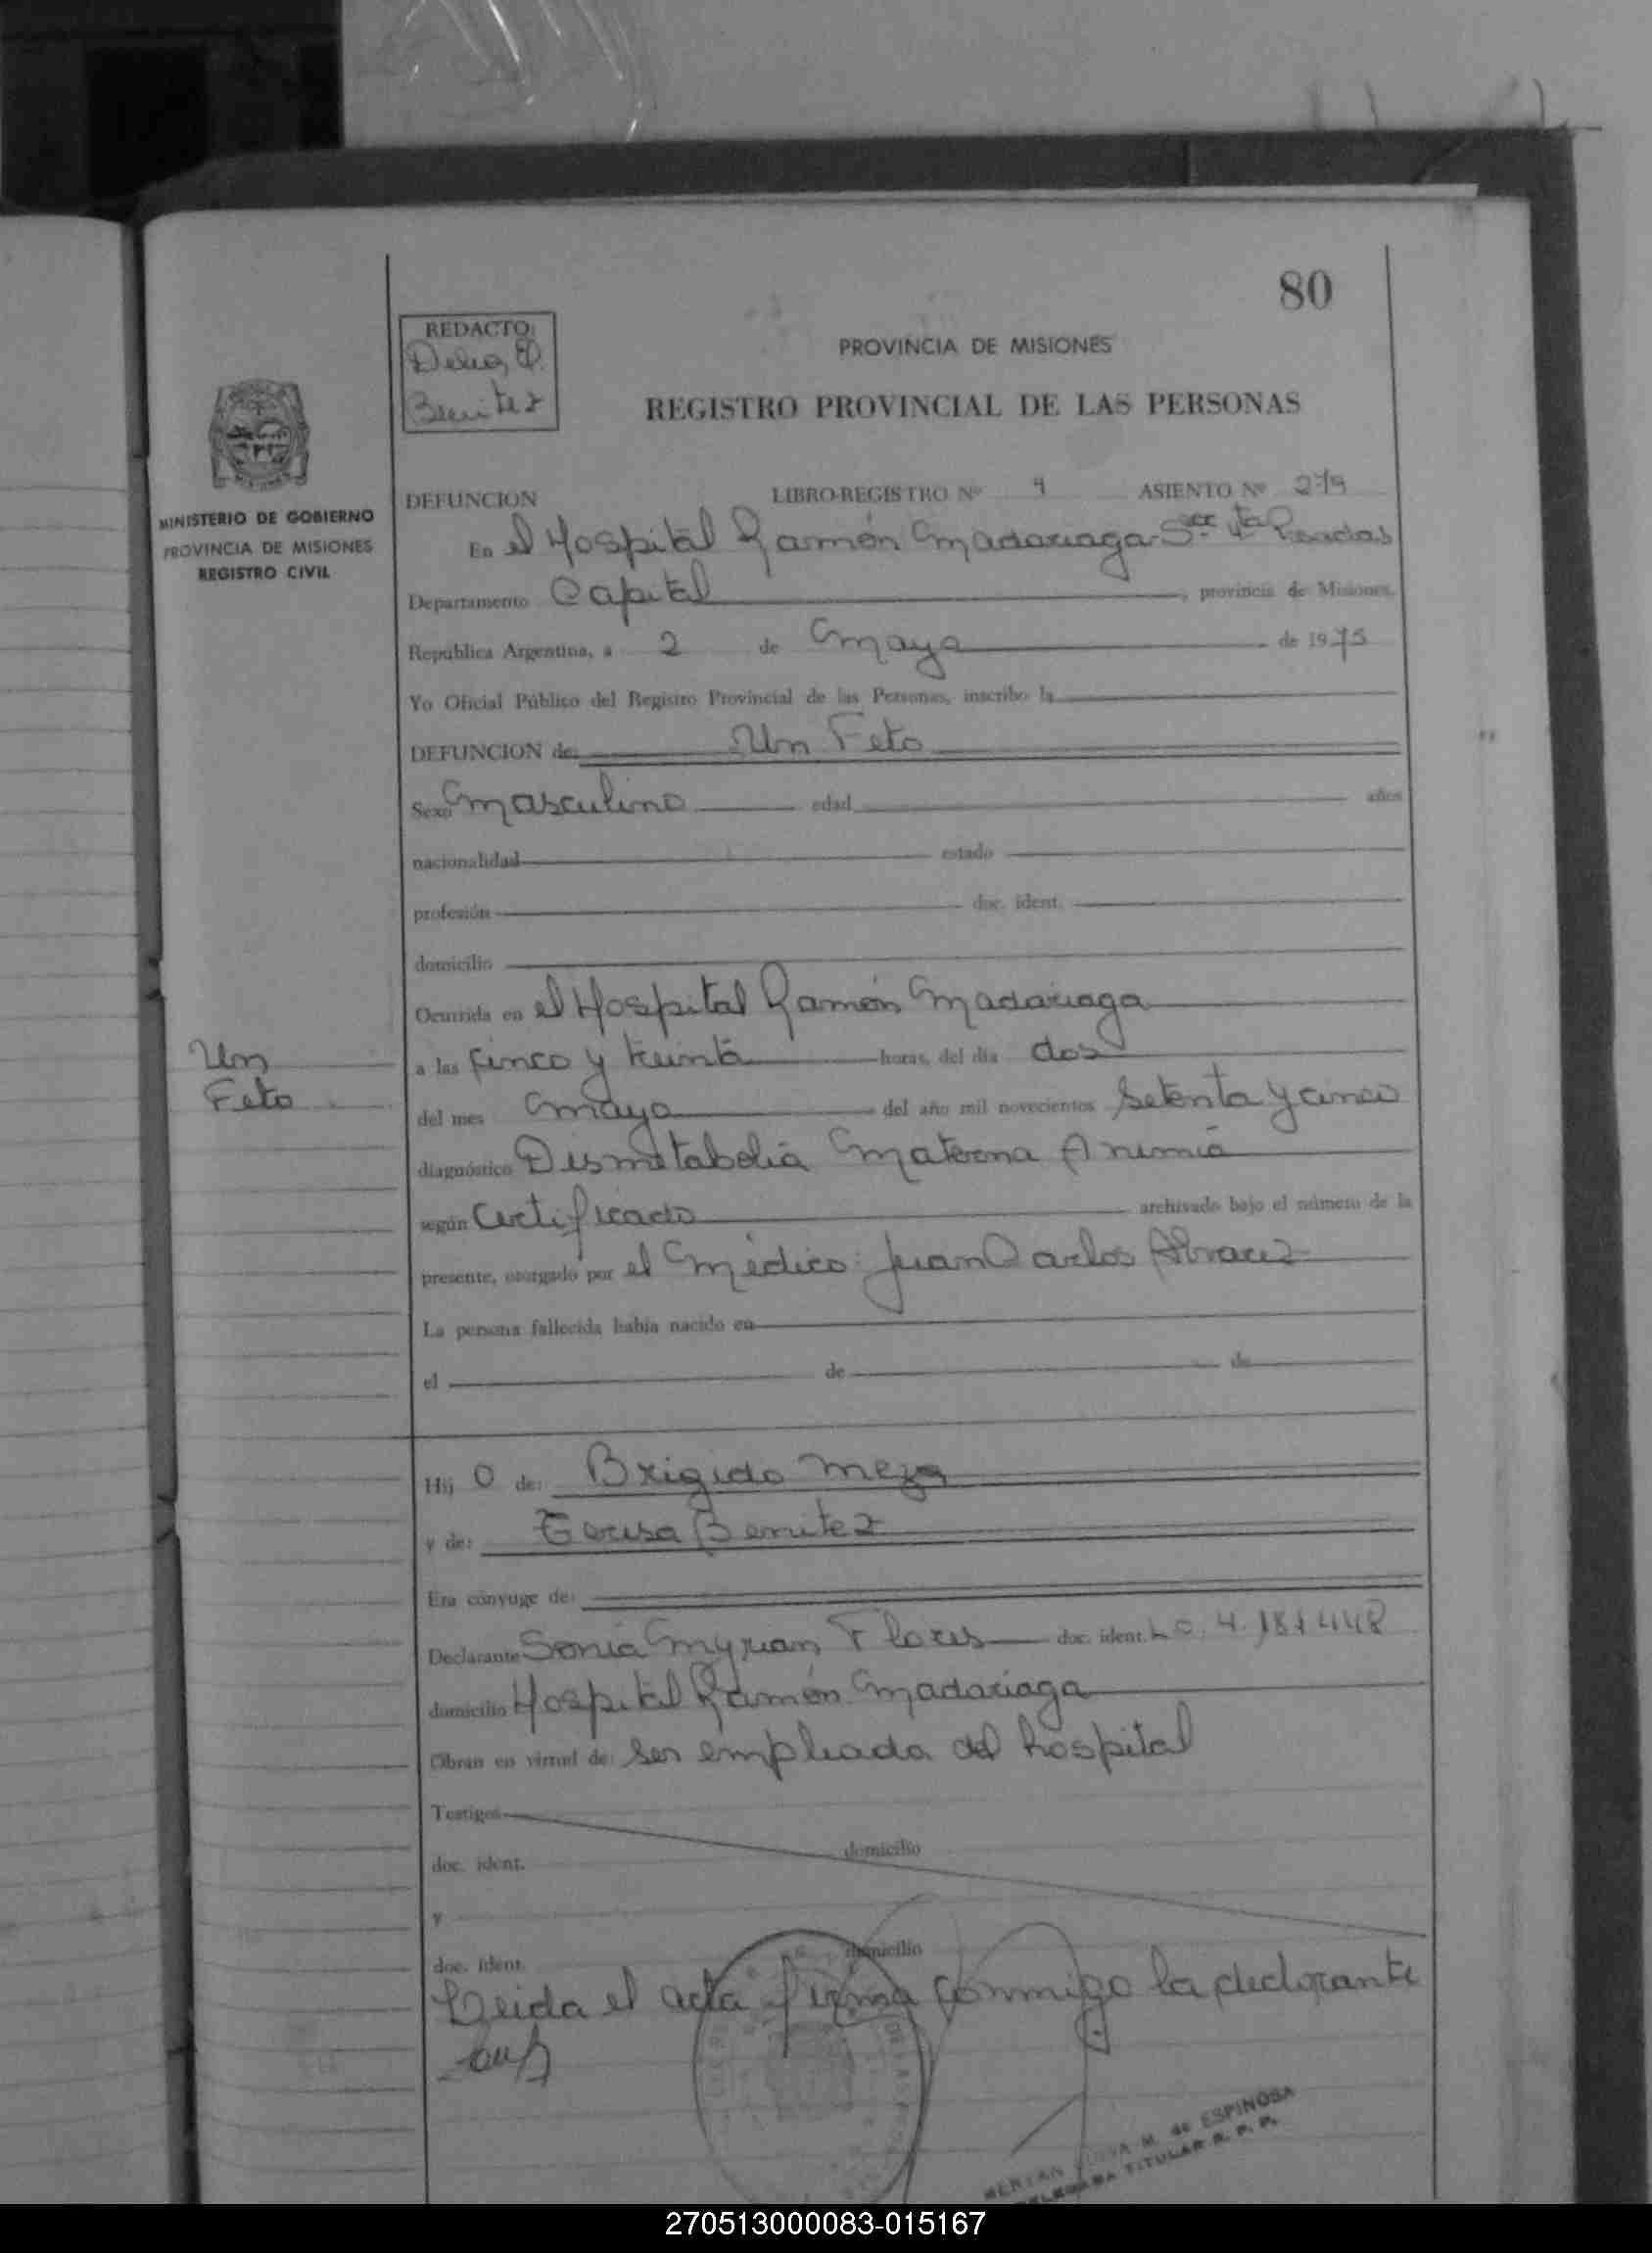 80
REDACTO:
Delia E.
Benitez
PROVINCIA DE MISIONES
REGISTRO PROVINCIAL DE LAS PERSONAS
MINISTERIO DE GOBIERNO
PROVINCIA DE MISIONES
REGISTRO CIVIL
DEFUNCION LIBRO-REGISTRO Nº ASIENTO Nº
En el Hospital Ramón Madariaga Scc 4ta Posadas
Departamento Capital, provincia de Misiones,
República Argentina, a 2 de Mayo de 1975
Yo Oficial Público del Registro Provincial de las Personas, inscribo la
DEFUNCION de: Un Feto
Sexo Masculino edad años
nacionalidad estado
profesión doc. ident.
domicilio
Ocurrida en el Hospital Ramón Madariaga
Un
Feto
a las cinco y treinta horas, del día dos
del mes Mayo del año mil novecientos setenta y cinco
diagnóstico Dismetabolia Materna Anemia
según certificado archivado bajo el número de la
presente, otorgado por el Médico: Juan Carlos Alvarez
La persona fallecida había nacido en
el de de
Hij o de: Brigido Meza
y de: Teresa Benitez
Era cónyuge de:
Declarante Sonia Myrian Flores doc. ident. L.C. 4.
domicilio Hospital Ramón Madariaga
Obran en virtud de: ser empleada del hospital
Testigos
doc. ident. domicilio
y
doc. ident. domicilio
Leida el acta firma conmigo la declarante
M. de ESPINOSA
DELEGADA TITULAR R. P. P.
270513000083-015167